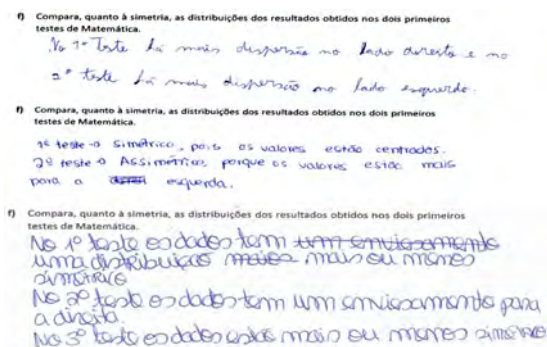 f) Compara, quanto à simetria, as distribuições dos resultados obtidos nos dois primeiros
testes de Matemática.
No 1º Teste há mais dispersão no lado direito e no
2º teste há mais dispersão no lado esquerdo.
f) Compara, quanto à simetria, as distribuições dos resultados obtidos nos dois primeiros
testes de Matemática.
1º teste → Simétrico, pois os valores estão centrados.
2º teste → Assimétrico, porque os valores estão mais
para a esquerda.
f) Compara, quanto à simetria, as distribuições dos resultados obtidos nos dois primeiros
testes de Matemática.
No 1º teste os dados tem um enviesamento
uma distribuição mais ou menos
simétrica
No 2º teste os dados tem um enviesamento para
a direita.
No 3º teste os dados estão mais ou menos simétrico